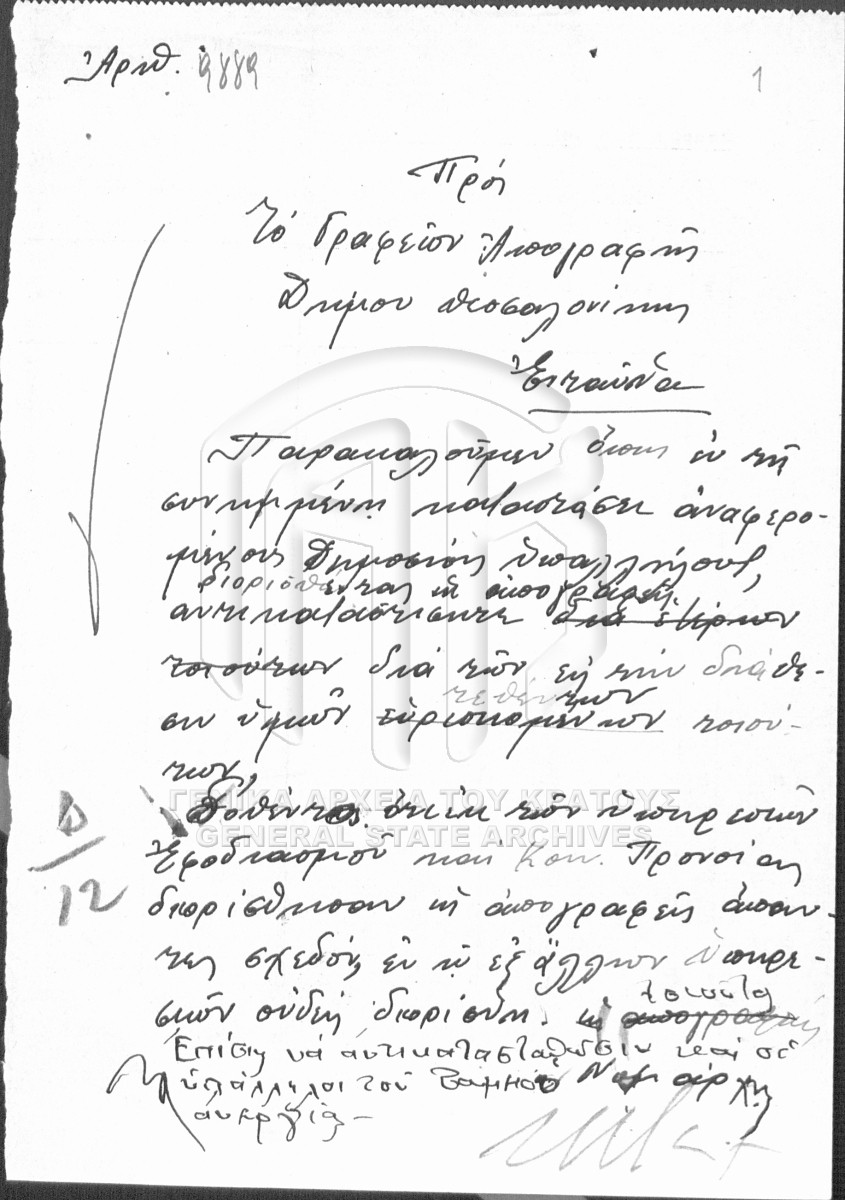 Ἀριθ. 9889
1
Πρὸς
τὸ Γραφεῖον Ἀπογραφῆς
Δήμου Θεσσαλονίκης
Ἐνταῦθα
Παρακαλοῦμεν ὅπως ἐν τῇ
συνημμένῃ καταστάσει ἀναφερο-
μένους Δημοσίους ὑπαλλήλους,
διορισθέντας ὡς ἀπογραφεῖς,
ἀντικαταστήσητε διὰ ἑτέρων
τοιούτων διὰ τῶν εἰς τὴν διάθε-
τεθέντων
σιν ὑμῶν εὑρισκομένων τοιού-
των,
Δοθέντος ὅτι ἐκ τῶν ὑπηρεσιῶν
Ἐφοδιασμοῦ καὶ Κοιν. Προνοίας
διωρίσθησαν ὡς ἀπογραφεῖς ἅπαν-
τες σχεδόν, ἐν ᾧ ἐξ ἄλλων ὑπηρε-
τοιοῦτος
σιῶν οὐδεὶς διωρίσθη. ὡς ἀπογραφεὺς
Ἐπίσης νὰ ἀντικατασταθῶσιν καὶ οἱ
ὑπάλληλοι τοῦ Ταμείου
ἀνεργίας –
Δ/12
ΓΕΝΙΚΑ ΑΡΧΕΙΑ ΤΟΥ ΚΡΑΤΟΥΣ
GENERAL STATE ARCHIVES